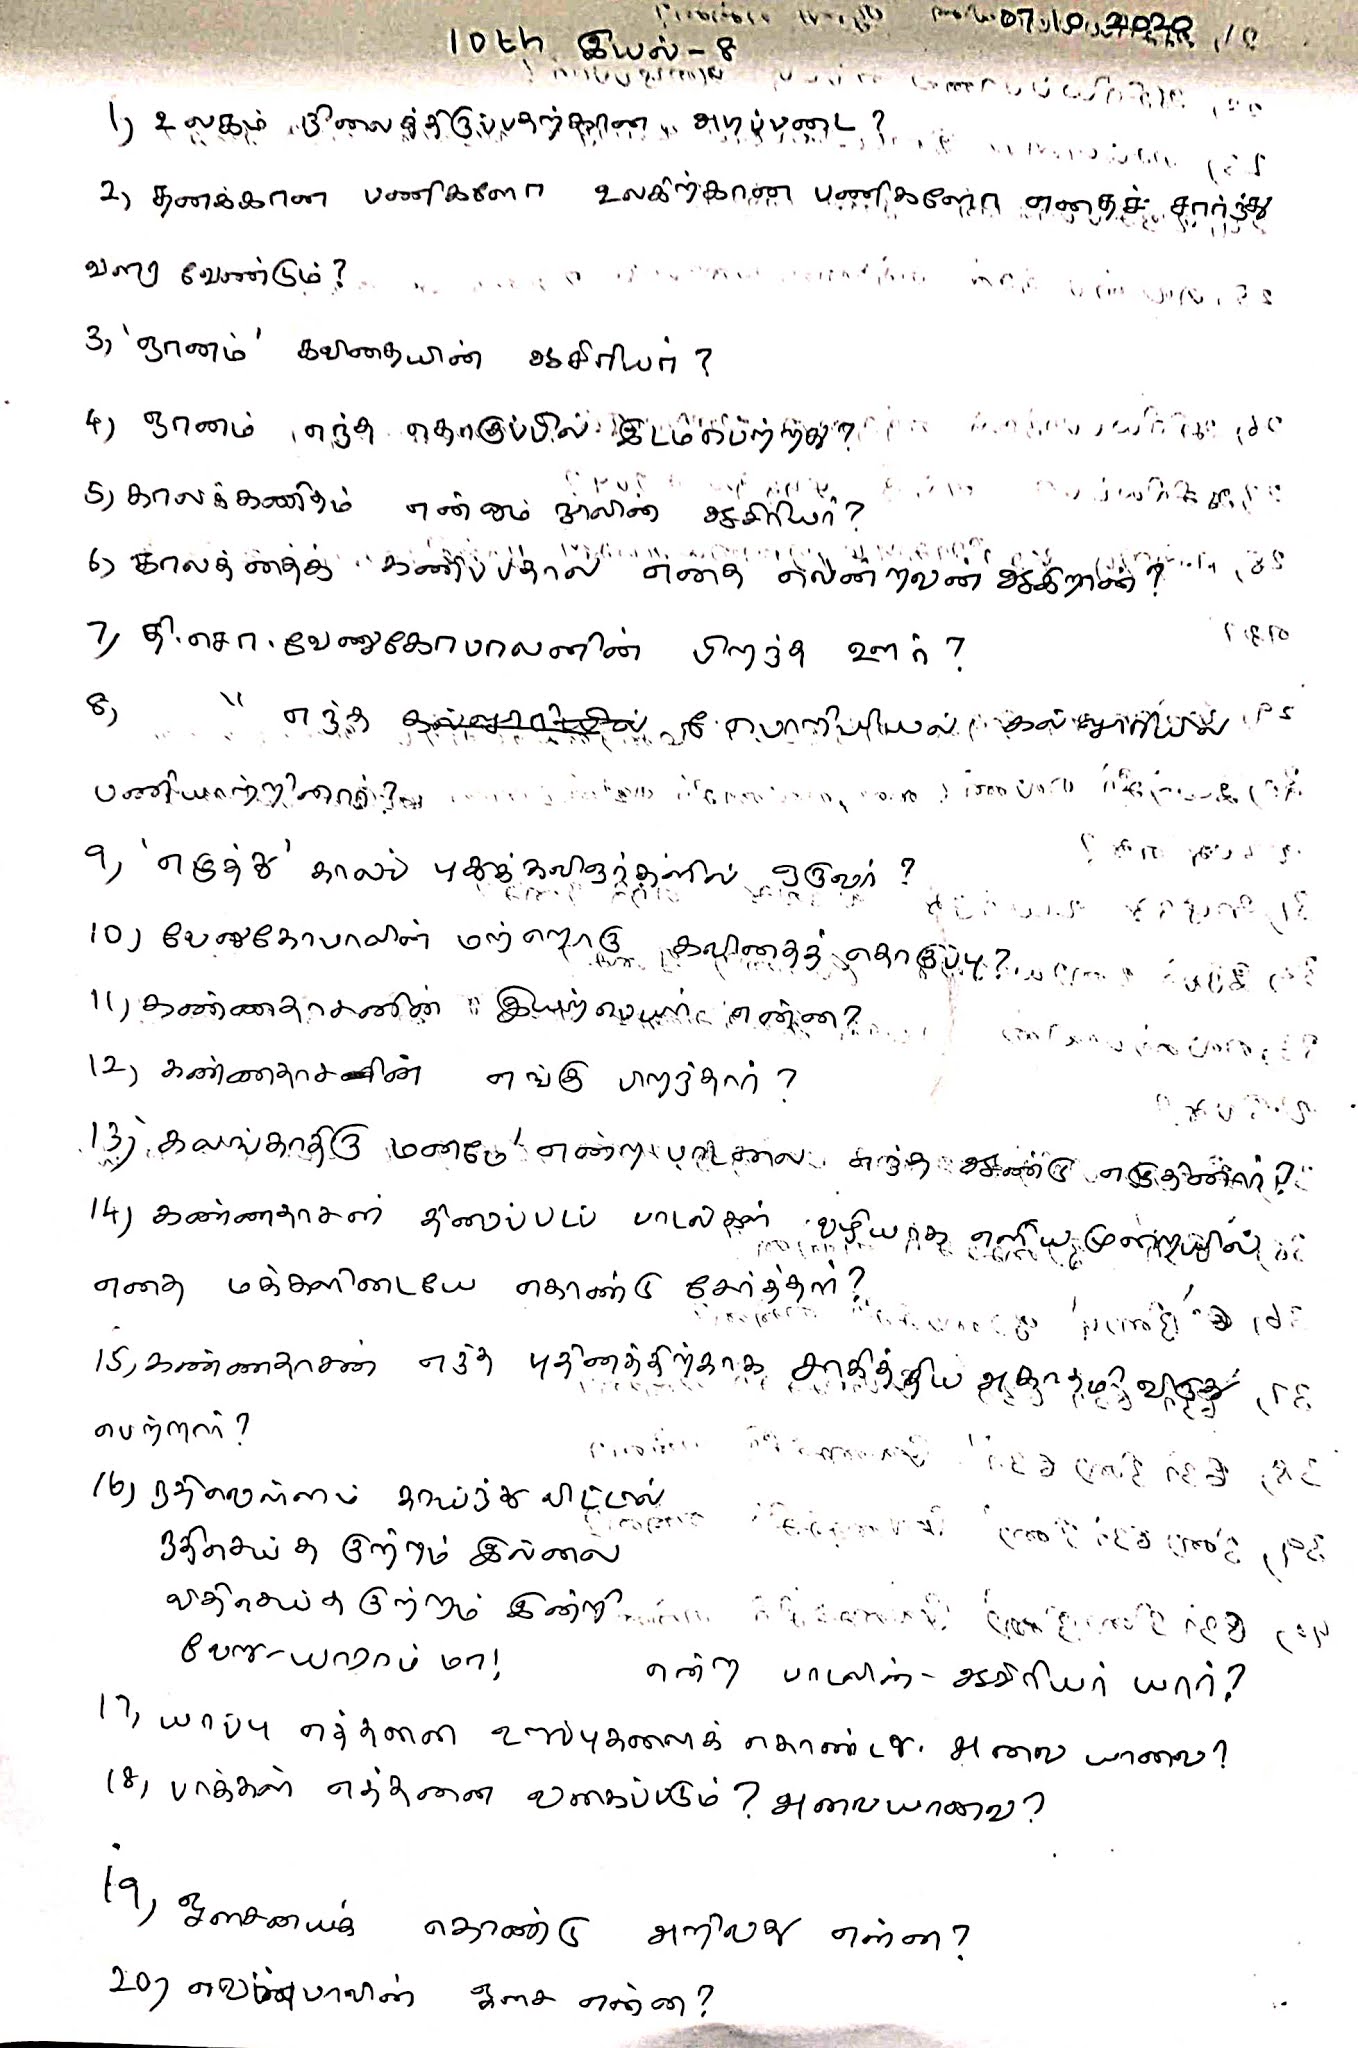 07.10.2020
10th இயல் - 8
1) உலகம் நிலைத்திருப்பதற்கான அடிப்படை?
2) தனக்கான பணிகளோ உலகிற்கான பணிகளோ எதைச் சார்ந்து
வளர வேண்டும்?
3) 'ஞானம்' கவிதையின் ஆசிரியர்?
4) ஞானம் எந்த தொகுப்பில் இடம்பெற்றது?
5) காலக்கணிதம் என்னும் நூலின் ஆசிரியர்?
6) காலத்தைக் கணிப்பதால் எதை வென்றவன் ஆகிறான்?
7) தி.சொ.வேணுகோபாலனின் பிறந்த ஊர்?
8) " எந்த பொறியியல் கல்லூரியில்
பணியாற்றினார்?
9) 'எழுத்து' காலப் புதுக்கவிஞர்களில் ஒருவர்?
10) வேணுகோபாலின் மற்றொரு கவிதைத் தொகுப்பு?
11) கண்ணதாசனின் இயற்பெயர் என்ன?
12) கண்ணதாசனின் எங்கு பிறந்தார்?
13) 'கலங்காதிரு மனமே' என்ற பாடலை எந்த ஆண்டு எழுதினார்?
14) கண்ணதாசன் திரைப்படப் பாடல்கள் வழியாக எளிய முறையில்
எதை மக்களிடையே கொண்டு சேர்த்தார்?
15) கண்ணதாசன் எந்த புதினத்திற்காக சாகித்திய அகாதமி விருது
பெற்றார்?
16) நதிவெள்ளம் காய்ந்து விட்டால்
நதிசெய்த குற்றம் இல்லை
விதிசெய்த குற்றம் இன்றி
வேறு-யாரம்மா! என்ற பாடலின் - ஆசிரியர் யார்?
17) யாப்பு எத்தனை உறுப்புகளைக் கொண்டது. அவை யாவை?
18) பாக்கள் எத்தனை வகைப்படும்? அவையாவை?
19) ஓசையைக் கொண்டு அறிவது என்ன?
20) வெண்பாவின் ஓசை என்ன?